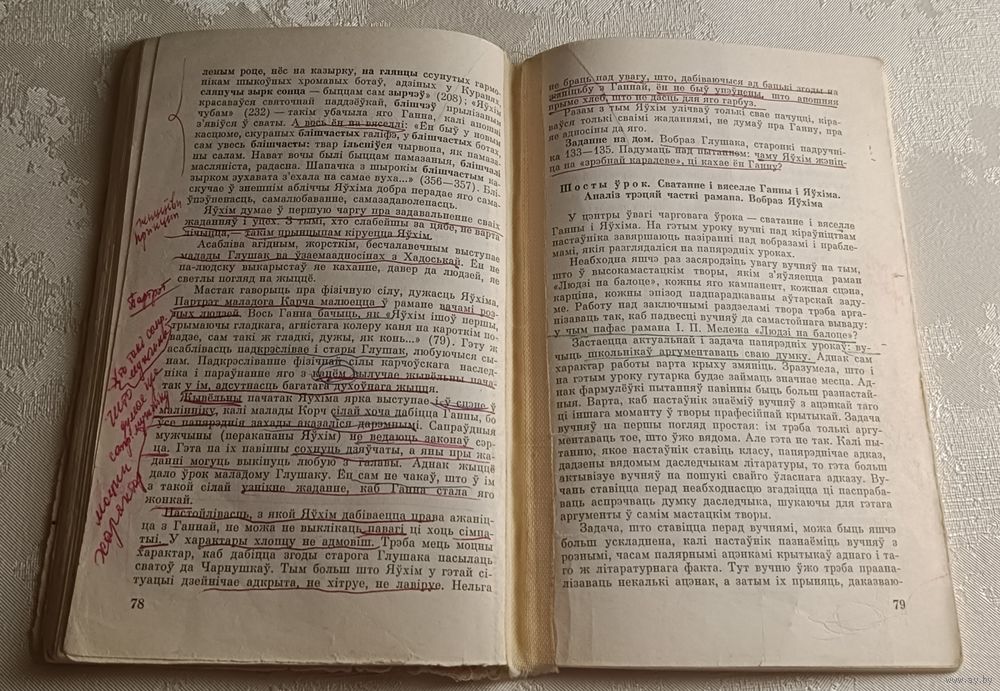 леным роце, нёс на казырку, на глянцы ссунутых гармо-
нікам шыкоўных хромавых ботаў, адзіных у Куранях,
сляпучы зырк сонца — быццам сам зырчэў» (208); «Яўхім
красаваўся святочнай паддзёўкай, блішчэў прылізаным
чубам» (232) — такім убачыла яго Ганна, калі анонні
з'явіўся ў сваты. А весь ён на вяселлі: «Ён быў у новым
касцюме, скураных блішчастых галіфэ, у блішчастых ботах,
сам увесь блішчасты: твар ільсніўся чырвона, як намаза-
ны салам. Нават вочы былі быццам памазаныя, блішчалі
масляніста, радасна. Шапачка з шырокім блішчастым ка-
зырком зухавата з'ехала на самае вуха...» (356—357). Блі-
скучае ў знешнім абліччы Яўхіма добра перадае яго сама-
ўпэўненасць, самалюбаванне, самазадаволенасць.
Яўхім думае ў першую чаргу пра задавальненне сваіх
жаданняў і уцех. З тымі, хто слабейшы за цябе, не варта
лічыцца,— такім прынцыпам кіруецца Яўхім.
Асабліва агідным, жорсткім, бесчалавечным выступае
малады Глушак ва ўзаемаадносінах з Хадоськай. Ён не
па-людску выкарыстаў яе каханне, давер да людзей, яе
светлы погляд на жыццё.
Мастак гаворыць пра фізічную сілу, дужасць Яўхіма.
Партрэт маладога Карча малюецца ў рамане вачамі роз-
ных людзей. Вось Ганна бачыць, як «Яўхім ішоў першы,
трымаючы гладкага, агністага колеру каня на кароткім по-
вадзе, сам такі ж гладкі, дужы, як конь...» (79). Гэту ж
асаблівасць падкрэслівае і стары Глушак, любуючыся сы-
нам. Падкрэсліванне фізічнай сілы карчоўскага наслед-
ніка і параўнанне яго з канём вылучае жывёльны пача-
так у ім, адсутнасць багатага духоўнага жыцця.
Жывёльны пачатак Яўхіма ярка выступае і ў сцэне ў
малінніку, калі малады Корч сілай хоча дабіцца Ганны, бо
ўсе папярэднія захады аказаліся дарэмнымі. Сапраўдныя
мужчыны (перакананы Яўхім) не ведаюць законаў сэр-
ца. Гэта па іх павінны сохнуць дзяўчаты, а яны пры жа-
данні могуць выкінуць любую з галавы. Аднак жыццё
дало ўрок маладому Глушаку. Ён сам не чакаў, што ў ім
з такой сілай узнікне жаданне, каб Ганна стала яго
жонкай.
Настойлівасць, з якой Яўхім дабіваецца права ажаніц-
ца з Ганнай, не можа не выклікаць павагі ці хоць сімпа-
тыі. У характары хлопцу не адмовіш. Трэба мець моцны
характар, каб дабіцца згоды старога Глушака пасылаць
сватоў да Чарнушкаў. Тым больш што Яўхім у гэтай сі-
туацыі дзейнічае адкрыта, не хітруе, не лавіруе. Нельга
78
Партрэт
не браць пад увагу, што, дабіваючыся ад бацькі згоды на
жаніцьбу ў Ганнай, ён не быў упэўнены, што апошняя
прыме хлеб, што не дасць для яго гарбуз.
Разам з тым Яўхім улічваў толькі свае пачуцці, кіра-
ваўся толькі сваімі жаданнямі, не думаў пра Ганну, пра
яе адносіны да яго.
Заданне на дом. Вобраз Глушака, старонкі падручні-
ка 133—135. Падумаць над пытаннем: чаму Яўхім жэніц-
ца на «зрэбнай каралеве», ці кахае ён Ганну?
Шосты ўрок. Сватанне і вяселле Ганны і Яўхіма.
Аналіз трэцяй часткі рамана. Вобраз Яўхіма
У цэнтры ўвагі чарговага ўрока — сватанне і вяселле
Ганны і Яўхіма. На гэтым уроку вучні пад кіраўніцтвам
настаўніка завяршаюць назіранні над вобразамі і прабле-
мамі, якія разглядаліся на папярэдніх уроках.
Неабходна яшчэ раз засяродзіць увагу вучняў на тым,
што ў высокамастацкім творы, якім з'яўляецца раман
«Людзі на балоце», кожны яго кампанент, кожная сцэна,
карціна, кожны эпізод падпарадкаваны аўтарскай заду-
ме. Работу над заключнымі раздзеламі твора трэба арга-
нізаваць так, каб падвесці вучняў да самастойнага вываду:
у чым пафас рамана І. П. Мележа «Людзі на балоце»?
Застаецца актуальнай і задача папярэдніх урокаў: ву-
чыць школьнікаў аргументаваць сваю думку. Аднак сам
характар работы варта крыху змяніць. Зразумела, што і
на гэтым уроку гутарка будзе займаць значнае месца. Ад-
нак фармулёўкі пытанняў павінны быць больш разнастай-
ныя. Варта, каб настаўнік знаёміў вучняў з ацэнкай таго
ці іншага моманту ў творы прафесійнай крытыкай. Задача
вучняў на першы погляд простая: ім трэба толькі аргу-
ментаваць тое, што ўжо вядома. Але гэта не так. Калі пы-
танню, якое настаўнік ставіць класу, папярэднічае адказ,
дадзены вядомым даследчыкам літаратуры, то гэта больш
актывізуе вучняў на пошукі свайго ўласнага адказу. Ву-
чань ставіцца перад неабходнасцю згадзіцца ці паспраба-
ваць аспрэчваць думку даследчыка, шукаючы для гэтага
аргументы ў самім мастацкім творы.
Задача, што ставіцца перад вучнямі, можа быць яшчэ
больш ускладнена, калі настаўнік пазнаёміць вучняў з
рознымі, часам палярнымі ацэнкамі крытыкаў аднаго і та-
го ж літаратурнага факта. Тут вучню ўжо трэба праана-
лізаваць некалькі ацэнак, а затым іх прыняць, даказваю-
79
www.av.by